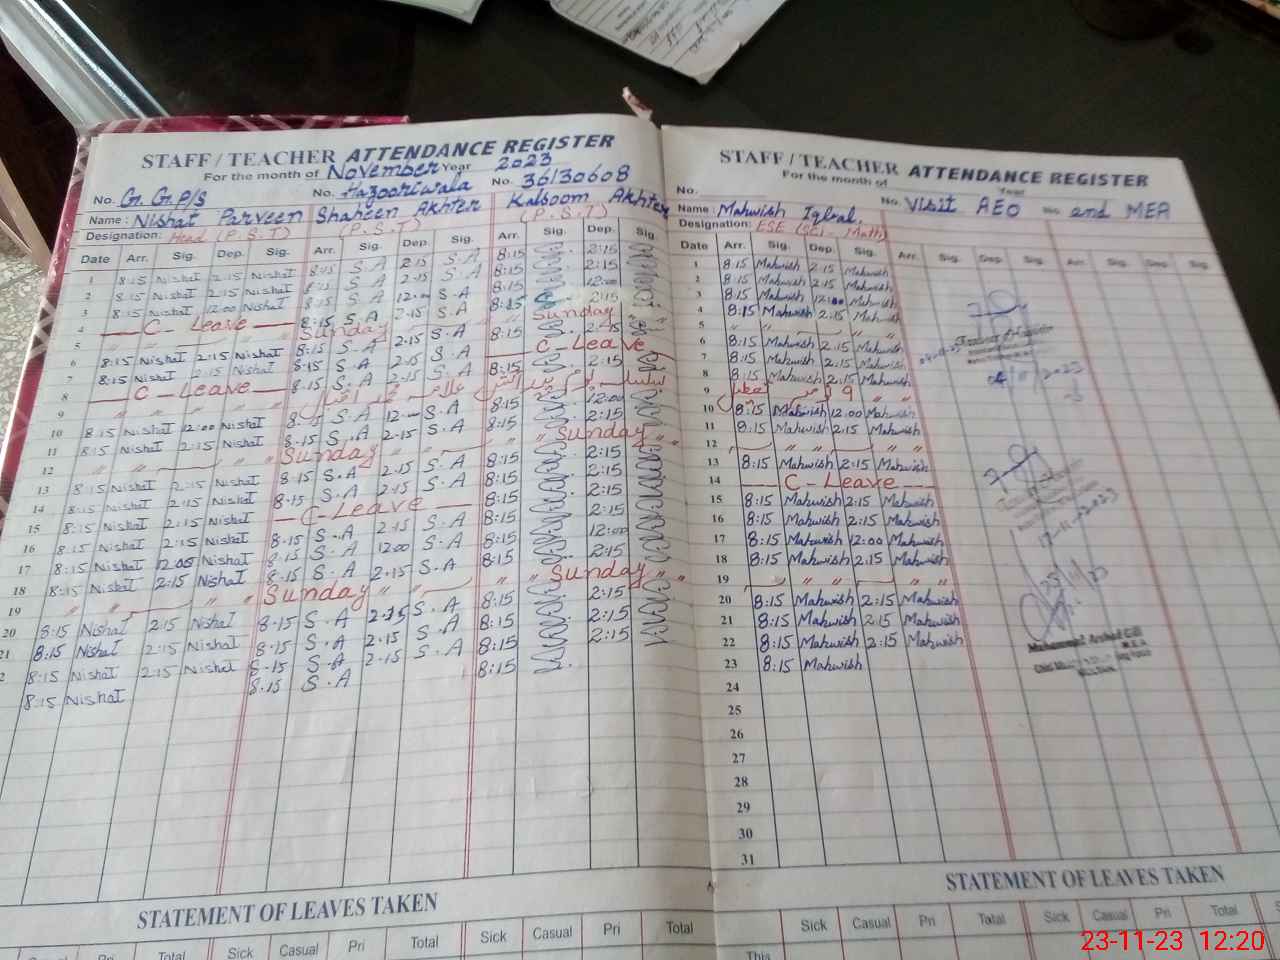 STAFF / TEACHER ATTENDANCE REGISTER
For the month of November Year 2023
No. G.G.P/S No. Hazooriwala No. 36130608
Name: Nishat Parveen Shaheen Akhter Kalsoom Akhter
Designation: Head (P.S.T) (P.S.T) (P.S.T)
Date Arr. Sig. Dep. Sig. Arr. Sig. Dep. Sig. Arr. Sig. Dep. Sig.
1 8:15 Nishat 2:15 Nishat 8:15 S.A 2:15 S.A 8:15 2:15
2 8:15 Nishat 2:15 Nishat 8:15 S.A 2:15 S.A 8:15 2:15
3 8:15 Nishat 12:00 Nishat 8:15 S.A 12:00 S.A 8:15 12:00
4 C-Leave 8:15 S.A 2:15 S.A 8:15 2:15
5 " " Sunday " " Sunday "
6 8:15 Nishat 2:15 Nishat 8:15 S.A 2:15 S.A 8:15 2:15
7 8:15 Nishat 2:15 Nishat 8:15 S.A 2:15 S.A C-Leave
8 C-Leave 8:15 S.A 2:15 S.A 8:15 2:15
9
10 8:15 Nishat 12:00 Nishat 8:15 S.A 12:00 S.A 8:15 12:00
11 8:15 Nishat 2:15 Nishat 8:15 S.A 2:15 S.A 8:15 2:15
12 " " Sunday " " Sunday "
13 8:15 Nishat 2:15 Nishat 8:15 S.A 2:15 S.A 8:15 2:15
14 8:15 Nishat 2:15 Nishat 8:15 S.A 2:15 S.A 8:15 2:15
15 8:15 Nishat 2:15 Nishat C-Leave 8:15 2:15
16 8:15 Nishat 2:15 Nishat 8:15 S.A 2:15 S.A 8:15 2:15
17 8:15 Nishat 12:00 Nishat 8:15 S.A 12:00 S.A 8:15 12:00
18 8:15 Nishat 2:15 Nishat 8:15 S.A 2:15 S.A 8:15 2:15
19 " " Sunday " " Sunday "
20 8:15 Nishat 2:15 Nishat 8:15 S.A 2:15 S.A 8:15 2:15
21 8:15 Nishat 2:15 Nishat 8:15 S.A 2:15 S.A 8:15 2:15
2 8:15 Nishat 2:15 Nishat 8:15 S.A 2:15 S.A 8:15 2:15
8:15 Nishat 8:15 S.A 8:15
STATEMENT OF LEAVES TAKEN
Casual Pri Total Sick Casual Pri Total Sick Casual Pri Total
STAFF / TEACHER ATTENDANCE REGISTER
For the month of Year
No. No. Visit AEO No. and MEA
Name: Mahwish Iqbal
Designation: ESE (Sci-Math)
Date Arr. Sig. Dep. Sig. Arr. Sig. Dep. Sig. Arr. Sig. Dep. Sig.
1 8:15 Mahwish 2:15 Mahwish
2 8:15 Mahwish 2:15 Mahwish
3 8:15 Mahwish 12:00 Mahwish
4 8:15 Mahwish 2:15 Mahwish
5 " " " "
6 8:15 Mahwish 2:15 Mahwish
7 8:15 Mahwish 2:15 Mahwish
8 8:15 Mahwish 2:15 Mahwish
9 9 نومبر تعطیل " "
10 8:15 Mahwish 12:00 Mahwish
11 8:15 Mahwish 2:15 Mahwish
12 " " " "
13 8:15 Mahwish 2:15 Mahwish
14 C-Leave
15 8:15 Mahwish 2:15 Mahwish
16 8:15 Mahwish 2:15 Mahwish
17 8:15 Mahwish 12:00 Mahwish
18 8:15 Mahwish 2:15 Mahwish
19 " " " "
20 8:15 Mahwish 2:15 Mahwish
21 8:15 Mahwish 2:15 Mahwish
22 8:15 Mahwish 2:15 Mahwish
23 8:15 Mahwish
24
25
26
27
28
29
30
31
17-11-2023
Muhammad Arshad Gill
STATEMENT OF LEAVES TAKEN
Sick Casual Pri Total Sick Casual Pri Total
This
23-11-23 12:20